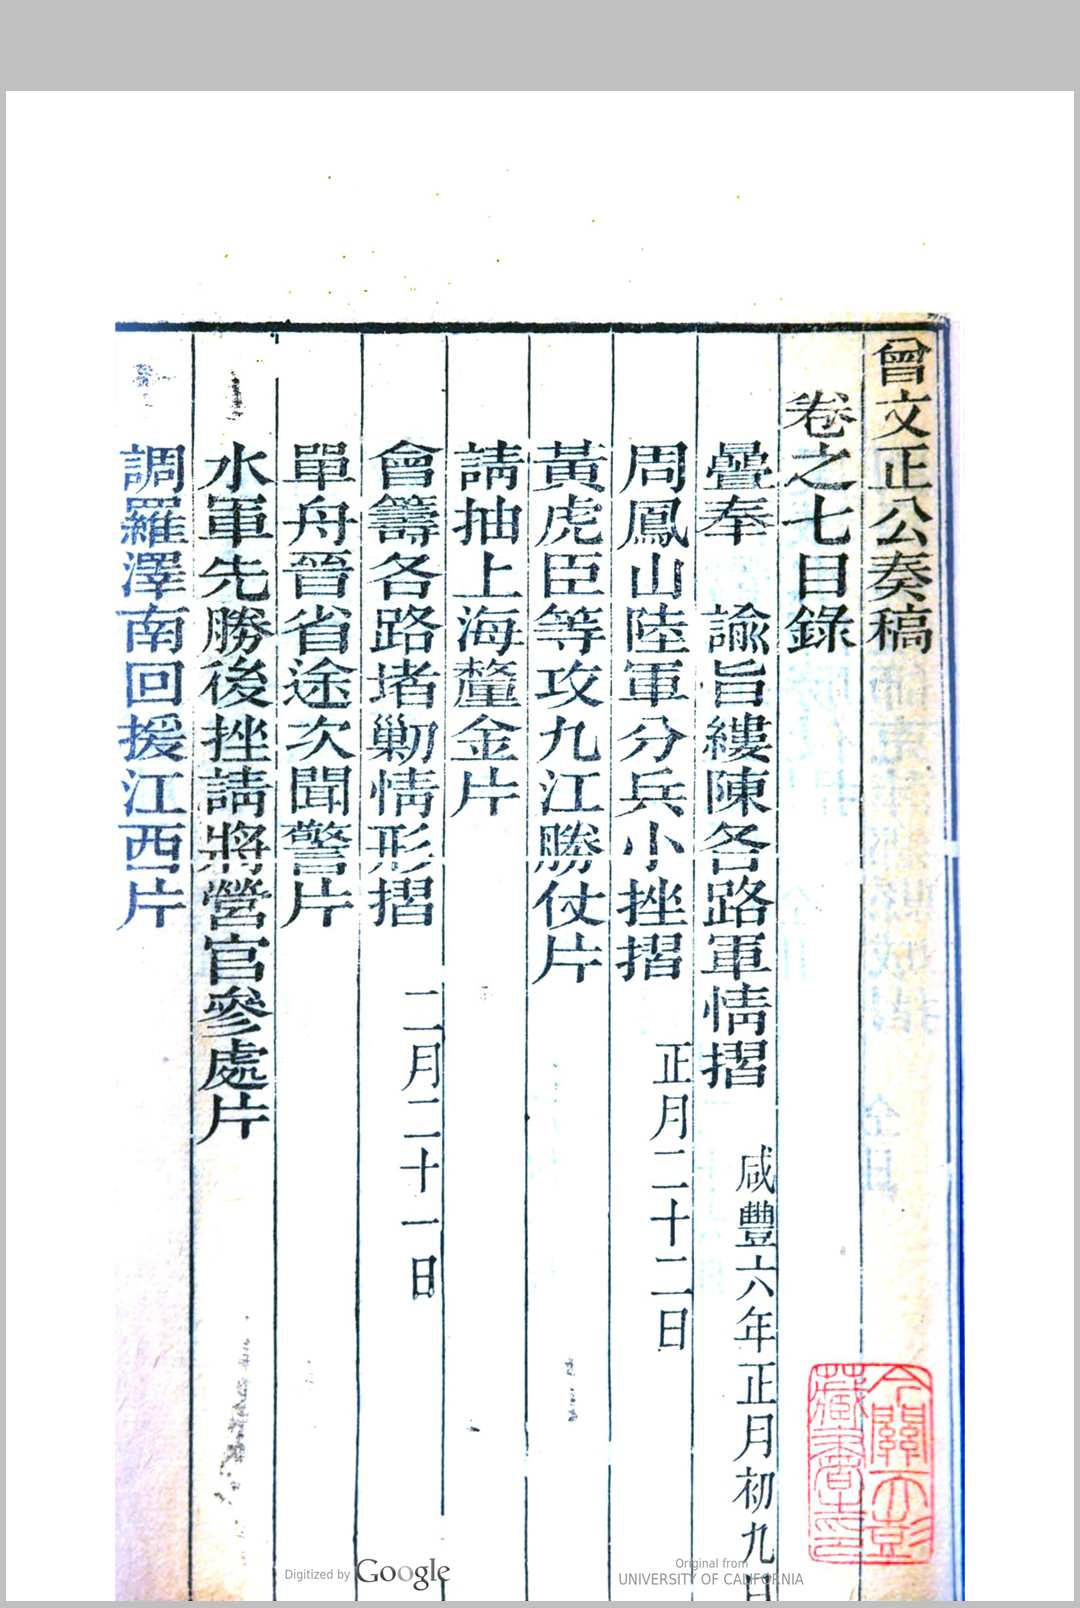 曾文正公奏稿
卷之七目錄
疊奉　諭旨縷陳各路軍情摺　咸豐六年正月初九日
周鳳山陸軍分兵小挫摺　正月二十二日
黃虎臣等攻九江勝仗片
請抽上海釐金片
會籌各路堵勦情形摺　二月二十一日
單舟晉省途次聞警片
水軍先勝後挫請將營官參處片
調羅澤南回援江西片
今關天彭
藏書之印
Digitized by Google
Original from
UNIVERSITY OF CALIFORNIA